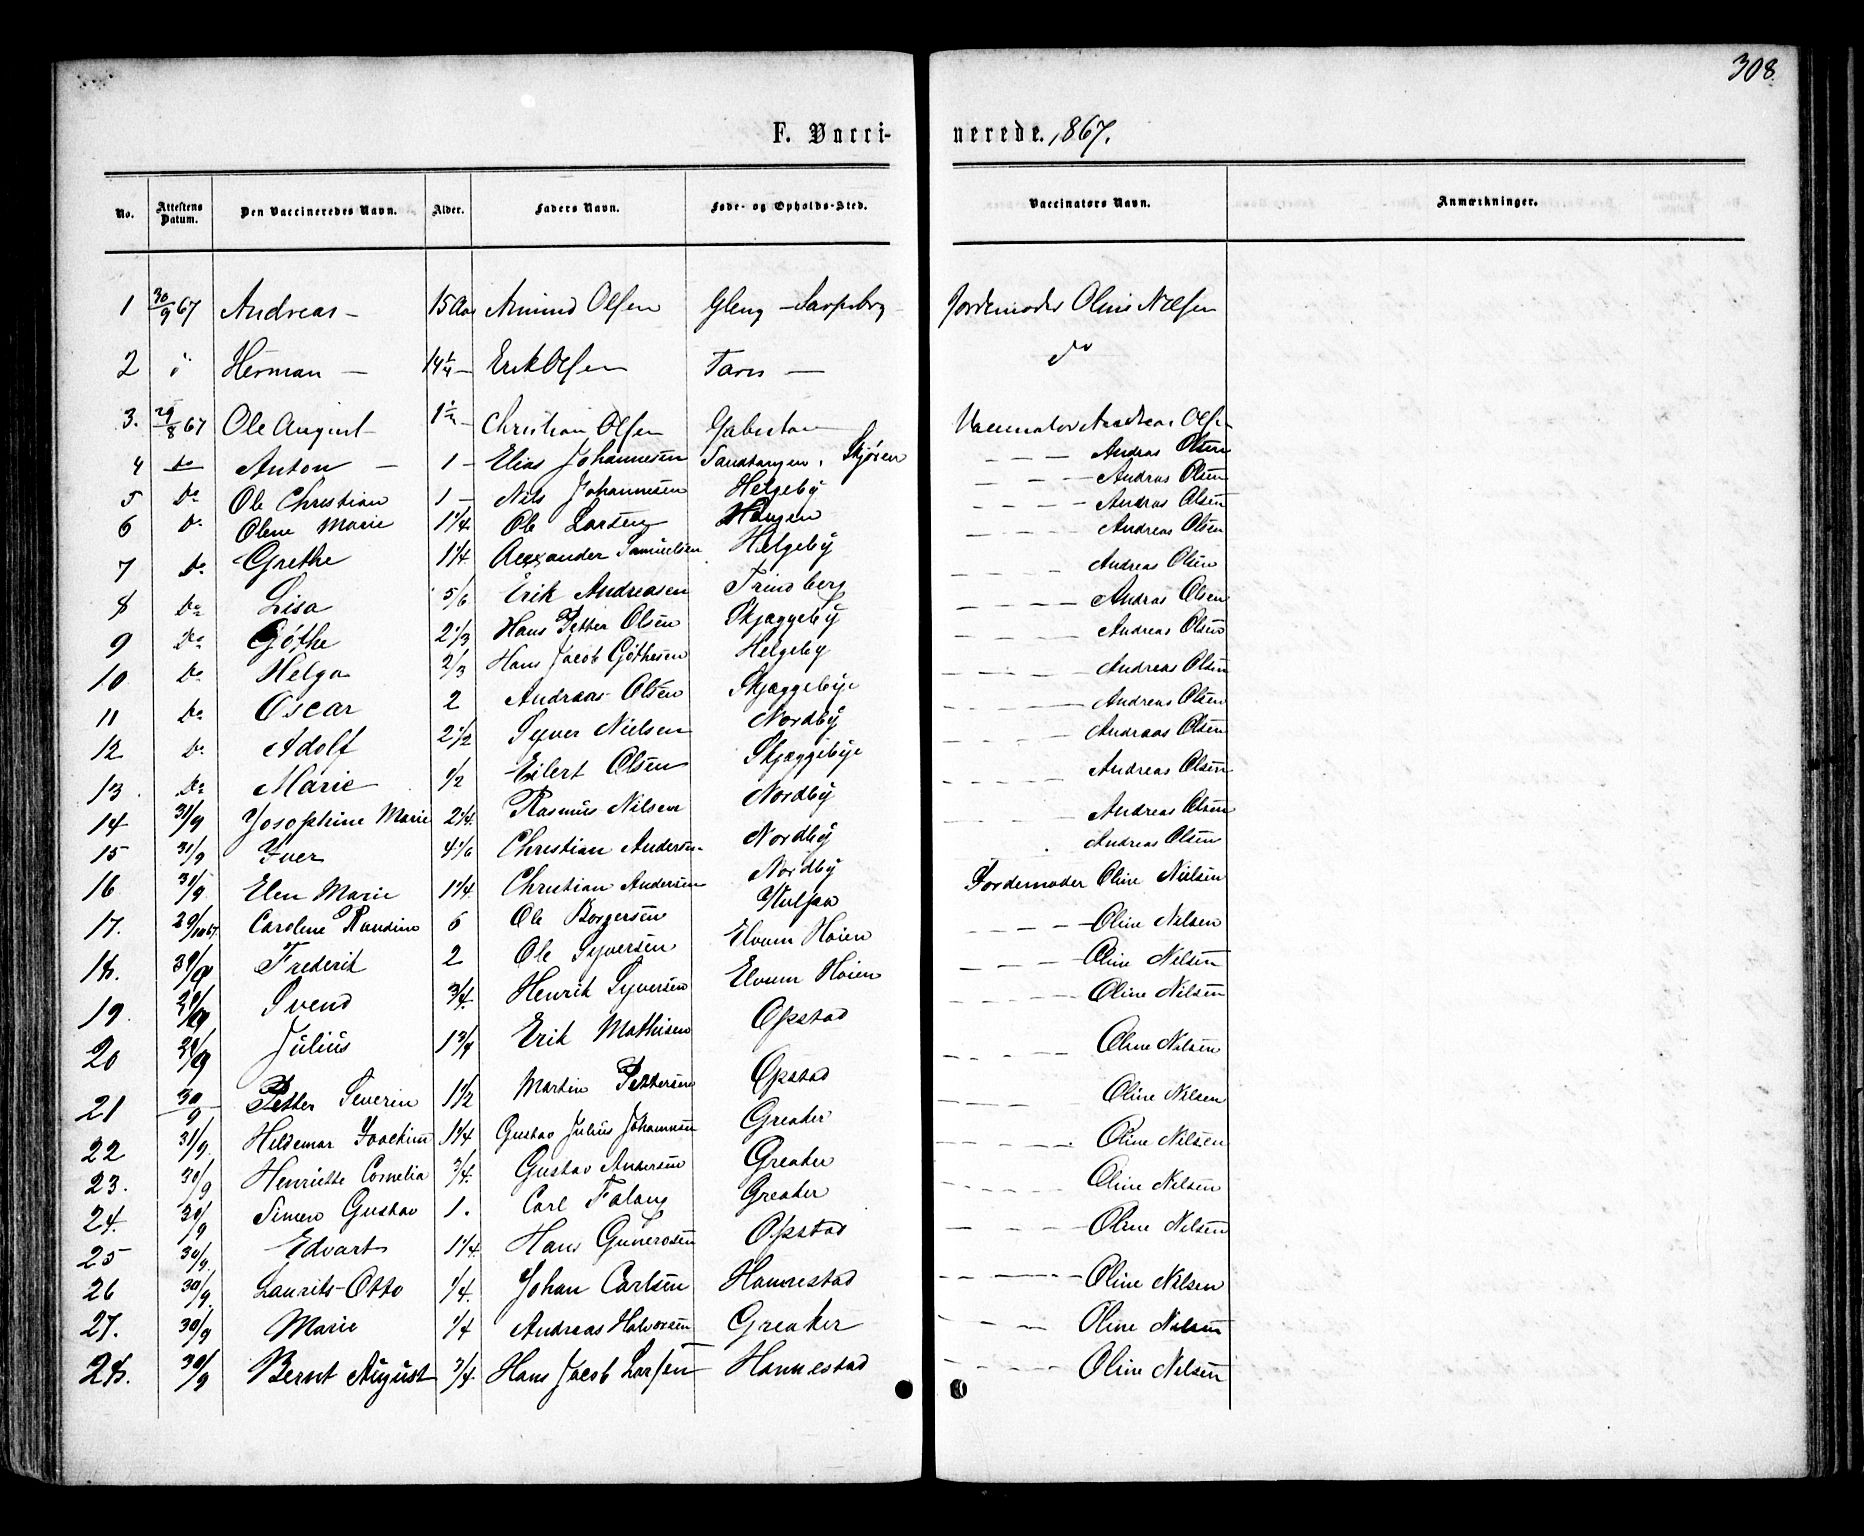 308.
F. Vaccinerede. 1867.
No. | Attestens Datum. | Den Vaccineredes Navn. | Alder. | Faders Navn. | Føde- og Opholds-Sted. | Vaccinators Navn. | Anmærkninger.
1 | 30/9 67 | Andreas – | 15 Aar | Amund Olsen | Gleng – Sarpsborg | Jordemoder Oline Nilsen
2 | Herman – | 14 1/4 – | Erik Olsen | Tars – | do
3. | 29/8 67 | Ole August – | 1 1/2 – | Christian Olsen | Vaccinator Andreas Olsen
4 | do | Anton – | 1 – | Elias Johannesen | Sandtangen. Skjøren | – – – Andras Olsen
5 | Do | Ole Christian | 1 – | Nils Johannesen | Helgeby | – – – Andras Olsen
6 | Do | Olene Marie | 1 1/4 | Ole Larsen | Haugen | – – – Andras Olsen
7 | Do | Grethe | 1 1/4 | Alexander Samuelsen | Helgeby | – – – Andreas Olsen
8 | Do | Lisa | 5/6 | Erik Andreasen | Trindberg | – – – Andreas Olsen
9 | Do | Gøthe | 2 1/3 | Hans Petter Olsen | Skjæggeby | – – – Andras Olsen
10 | Do | Helga | 2/3 | Hans Jacob Gøthesen | Helgeby | – – – Andreas Olsen
11 | Do | Oscar | 2 | Andraas Olsen | Skjæggebye | – – – Andreas Olsen
12 | Do | Adolf | 2 1/2 | Syver Nielsen | Nordby | – – – Andreas Olsen
13 | Do | Marie | 1/2 | Eilert Olsen | Skjæggebye | – – – Andraas Olsen
14 | 31/9 | Josophine Marie | 2 1/4. | Rasmus Nilsen | Nordby | – – – Andreas Olsen
15 | 31/9 | Iver | 4 1/6 | Christian Andersen | Nordby | – – – Andreas Olsen
16 | 31/9 | Elen Marie | 1 1/4. | Christian Andersen | Nordby | Andreas Olsen
17. | 29/10 67 | Carolene Randine | 6 | Ole Borgersen | Jordemoder Oline Nielsen
18. | 31/9 | Frederik | 2 | Ole Syversen | Elvum Høien | – – – Oline Nilsen
19. | Svend | 3/4. | Henrik Syversen | Elvum Høien | – – – Oline Nilsen
20 | Julius | 1 3/4 | Erik Mathisen | Opstad | – – – Oline Nilsen
21 | 30/9 | Petter Severin | 1 1/2 | Martin Pettersen | Opstad | – – – Oline Nilsen
22 | 31/9. | Hildemar Joachim | 1 1/4 | Gustav Julius Johannesen | Greaker | – – – Oline Nilsen
23. | 30/9 | Henriette Cornelia | 3/4. | Gustav Andersen | Greaker | – – – Oline Nilsen
24. | 30/9 | Simen Gustav | 1. | Carl Falang | Greaker | – – – Oline Nilsen
25 | 30/9. | Edvart | 1 1/4. | Hans Gunerosen | Opstad | – – – Oline Nilsen
26 | 30/9. | Laurits-Otto | 1/4. | Johan Carlsen | Hannestad | – – – Oline Nilsen
27. | 30/9 | Marie | 1/4 | Andreas Halvorsen | Greaker | – – – Oline Nilsen
28. | 30/9 | Bernt August | 3/4. | Hans Jacob Larsen | Hannestad | Oline Nilsen